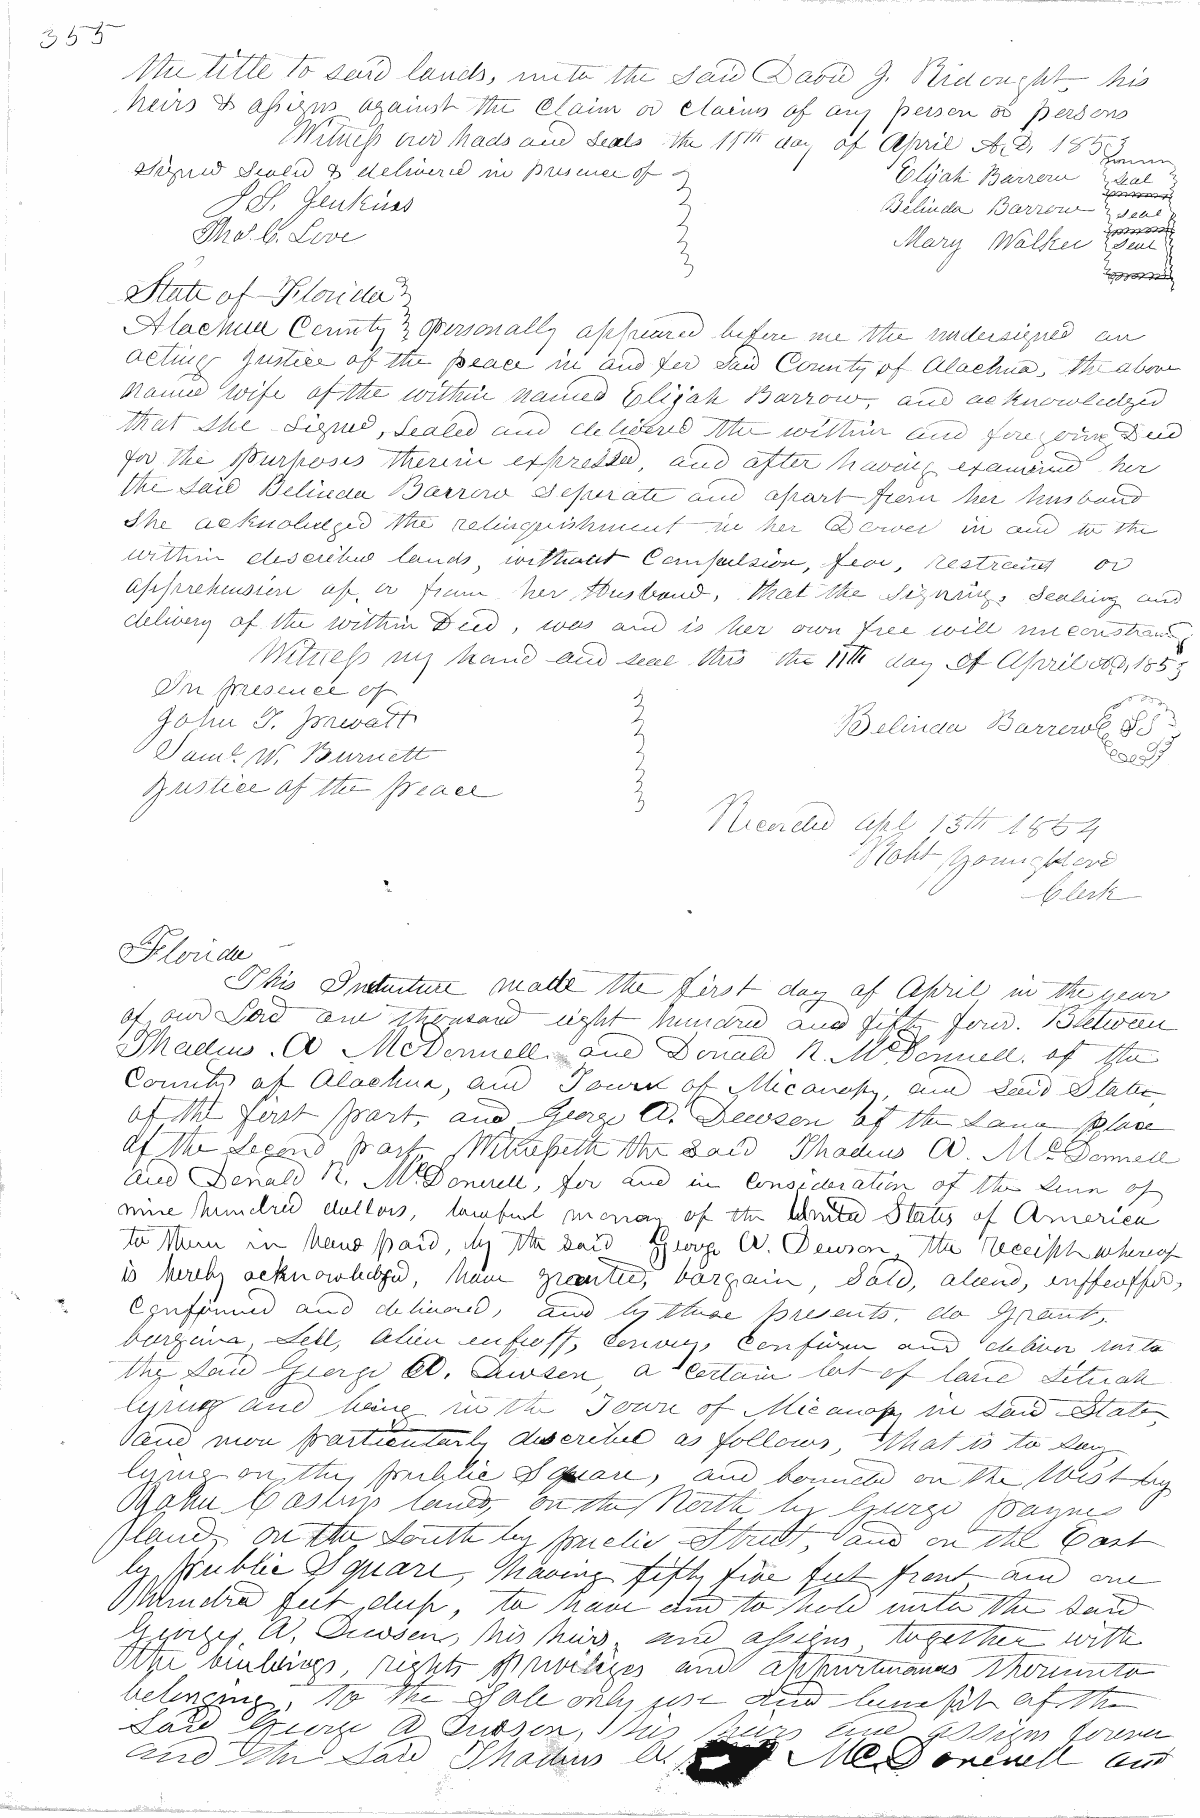 355
the title to said lands, unto the Said David J. his
heirs & assigns against the Claim or claims of any person or persons
Witness our hads and seals the 11th day of April A.D. 1853
Signed Sealed & delivered in presence of
Elijah Barrow seal
J. S. Jenkins
Belinda Barrow seal
Thos. C. Love
Mary Walker seal
State of Florida
Alachua County Personally appeared before me the undersigned an
acting Justice of the peace in and for Said County of Alachua, the above
Named wife of the within named Elijah Barrow, and acknowledged
that she Signed, Sealed and delivered the within and foregoing Deed
for the Purposes therein expressed, and after having examined her
the Said Belinda Barrow Seperate and apart from her husband
She acknoledged the relinquishment in her Dower in and to the
within described lands, without Compulsion, fear, restraint or
apprehension of or from her Husband, that the Signing, Sealing and
delivery of the within Deed, was and is her own free will unconstrained
Witness my hand and seal this the 11th day of April A.D. 1853
In presence of
John T. Prevatt
Belinda Barrow LS
Saml. W. Burnett
Justice of the Peace
Recorded Apl 13th 1854
Robt Younglove
Clerk
Florida
This Indenture made the first day of April in the year
of our Lord one thousand eight hundred and fifty four. Between
Thadius A McDonnell and Donald N. McDonnell, of the
County of Alachua, and Town of Micanopy, and said State,
of the first part, and George A. Dewson of the Same place
of the Second part Witnesseth the Said Thadius A. McDonnell
and Donald N. McDonnell, for and in Consideration of the Sum of
nine hundred dollars, lawful money of the United States of America
to them in hand paid, by the said George A. Dewson, the receipt whereof
is hereby acknowledged, have granted, bargain, Sold, aliend, enffeoffed,
Confirmed and delivered, and by these presents, do Grant,
bargain, Sell, alien enfeoff, convey, Confirm and deliver unto
the Said George A. Dewson, a Certain lot of land Situate
lying and being in the Town of Micanopy in Said State,
and more particularly described as follows, that is to say
lying on the public Square, and bounded on the West by
John land, on the North by George Paynes
land, on the South by Public Street, and on the East
by Public Square, having fifty five feet front and one
Hundred feet deep, to have and to hold unto the Said
George A. Dewson, his heirs, and assigns, together with
the buildings, rights Priviliges and appurtenances thereunto
belonging, To the Sole only use and benefit of the
Said George A Dewson, his heirs and assigns forever
and the Said Thadius A. McDonnell and